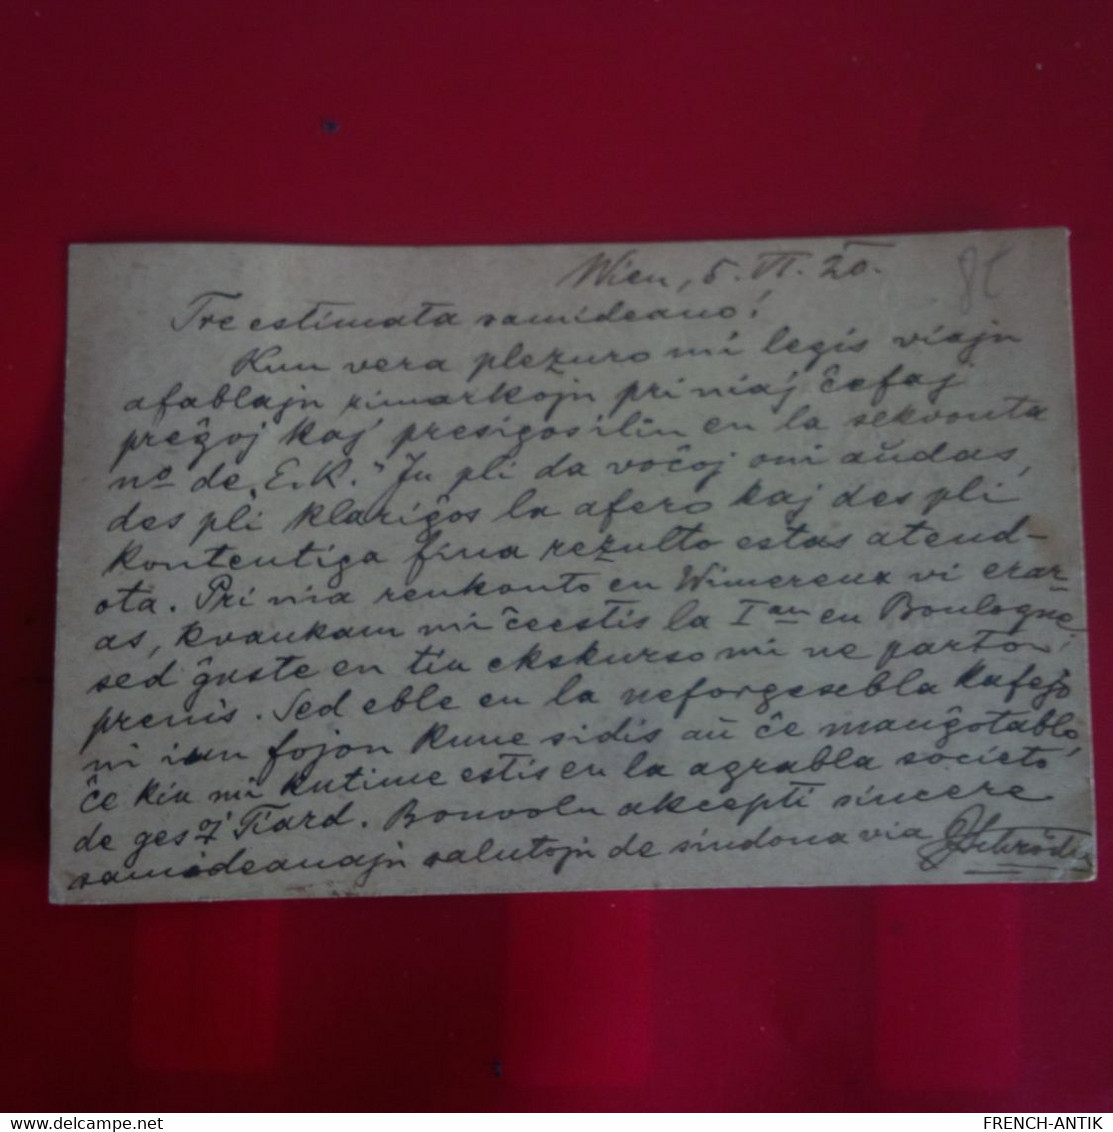 Wien, 5. VI. 20.
Tre estimata samideano!
Kun vera plezuro mi legis viajn
afablajn rimarkojn pri niaj ĉefaj
preĝoj kaj presigos ilin en la sekvonta
no de „E.K." Ju pli da voĉoj oni aŭdas,
des pli klariĝos la afero kaj des pli
kontentiga fina rezulto estas atend-
ota. Pri nia renkonto en Wimereux vi erar-
as, kvankam mi ĉeestis la Ian en Boulogne,
sed ĝuste en tiu ekskurso mi ne parto-
prenis. Sed eble en la neforgesebla kafejo
ni iun fojon kune sidis aŭ ĉe manĝotablo,
ĉe kiu mi kutime estis en la agrabla societo
de gesoj Tiard. Bonvolu akcepti sincere
samideanajn salutojn de sindona via JSchröder
FRENCH-ANTIK